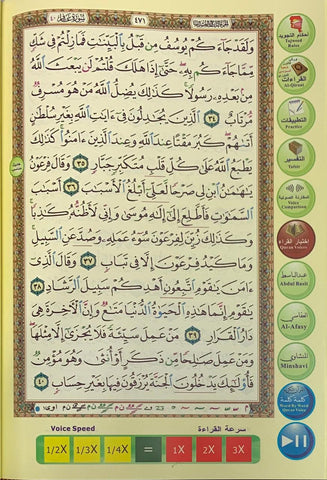 سورة غافر ٤٠
٤٧١
ولقد جاءكم يوسف من قبل بالبينت فما زلتم في شك
مما جاءكم به حتى إذا هلك قلتم لن يبعث الله
من بعده رسولا كذلك يضل الله من هو مسرف
مرتاب ٣٤ الذين يجدلون في ءايت الله بغير سلطن
أتىهم كبر مقتا عند الله وعند الذين ءامنوا كذلك
يطبع الله على كل قلب متكبر جبار ٣٥ وقال فرعون
يهمن ابن لي صرحا لعلي أبلغ الأسبب ٣٦ أسبب
السموت فأطلع إلى إله موسى وإني لأظنه كذبا
وكذلك زين لفرعون سوء عمله وصد عن السبيل
وما كيد فرعون إلا في تباب ٣٧ وقال الذي
ءامن يقوم اتبعون أهدكم سبيل الرشاد ٣٨
يقوم إنما هذه الحيوة الدنيا متع وإن الءاخرة هي
دار القرار ٣٩ من عمل سيئة فلا يجزى إلا مثلها
ومن عمل صلحا من ذكر أو أنثى وهو مؤمن
فأولئك يدخلون الجنة يرزقون فيها بغير حساب ٤٠
أحكام التجويد
Tajweed Rules
القراءات
Al-Qiraat
التطبيقات
Practice
التفسير
Tafsir
المقارنة الصوتية
Voice Comparison
إختيار القراء
Quran Voices
عبدالباسط
Abdul Basit
العفاسي
Al-Afasy
المنشاوي
Minshavi
كلمة كلمة
Word By Word
Quran Voice
Voice Speed
سرعة القراءة
1/2X 1/3X 1/4X = 1X 2X 3X